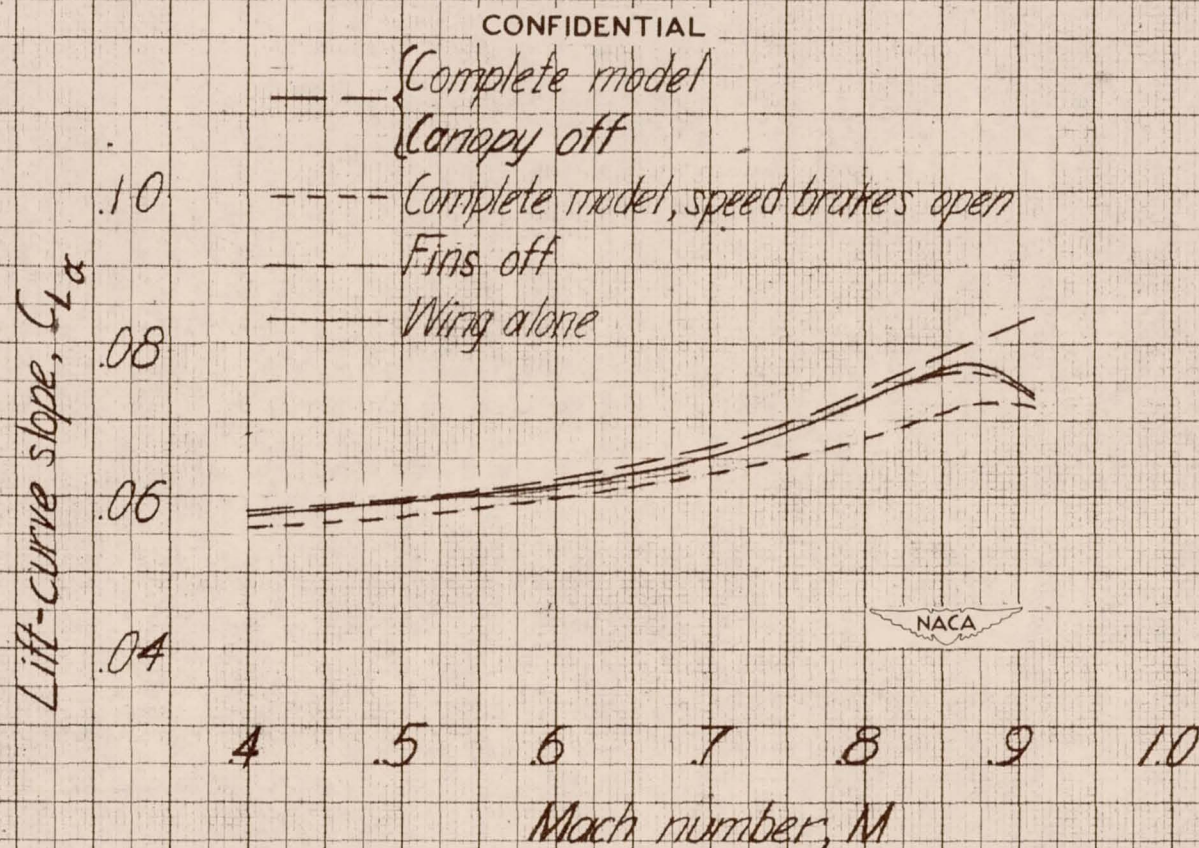 CONFIDENTIAL
Complete model
Canopy off
Complete model, speed brakes open
Fins off
Wing alone
Lift-curve slope, CLα
.10
.08
.06
.04
NACA
.4 .5 .6 .7 .8 .9 1.0
Mach number, M